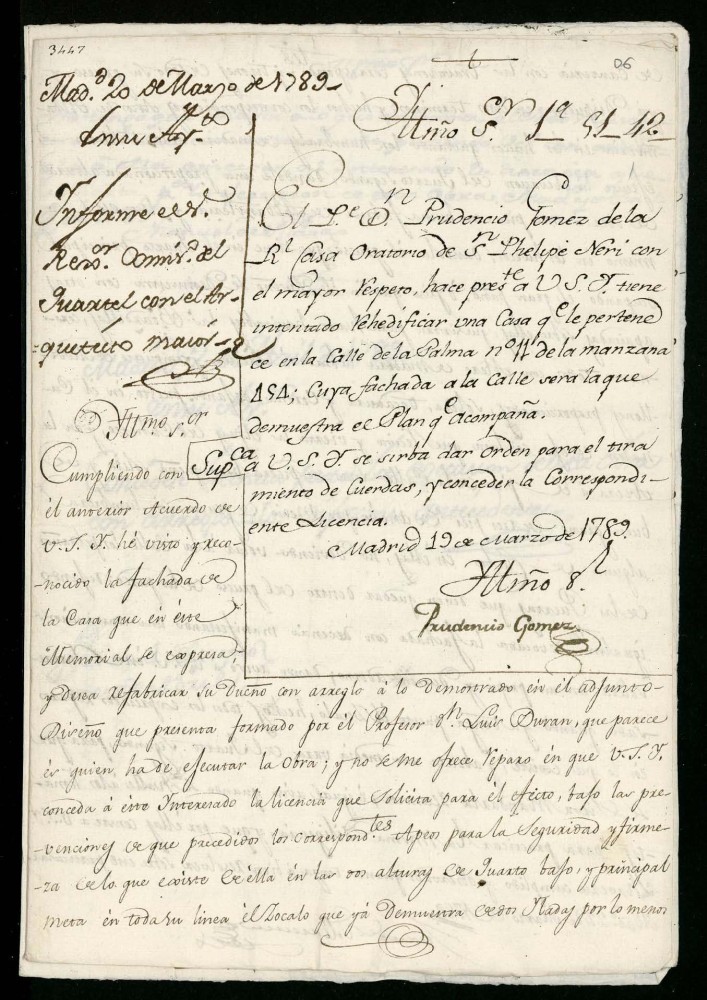 3447
06
Mad.d 20 de Marzo de 1789
En su Ay.to
Informe el S.r
Rexi.or Comis.o del
Quartel con el Ar-
=quitecto maior
Illmo S.or
1-a 51-42
El P.e D.n Prudencio Gomez de la
R.l Casa Oratorio de S.n Phelipe Neri con
el mayor Respeto, hace pres.te a V.S.I. tiene
intentado Rehedificar una Casa q.e le pertene
ce en la Calle de la Palma n.o 11 de la manzana
454; Cuya fachada a la Calle sera la que
demuestra el Plan q.e acompaña.
Sup.ca a V.S.I. se sirba dar orden para el tira
miento de Cuerdas, y conceder la Correspondi-
ente Licencia.
Madrid 19 de Marzo de 1789.
Illmo S.r
Prudencio Gomez
Illmo S.or
Cumpliendo con
él anterior Acuerdo de
V.S.I. hé visto y reco-
-nocido la fachada de
la Casa que en éste
Memorial se expresa,
y desea refabricar su dueño con arreglo á lo demostrado en él adjunto
Diseño que presenta formado por él Profesor D.n Luis Duran, que parece
és quien ha de ejecutar la Obra; y no se me ofrece reparo en que V.S.I.
conceda á este Interesado la licencia que Solicita para él efecto, bajo las pre
-venciones de que precedidos los correspond.tes Apeos para la Seguridad y firme-
-za de lo que existe de élla en las dos alturas de Quarto bajo, y principal
meta en toda su linea él Zocalo que yá demuestra de dos Yladas por lo menos